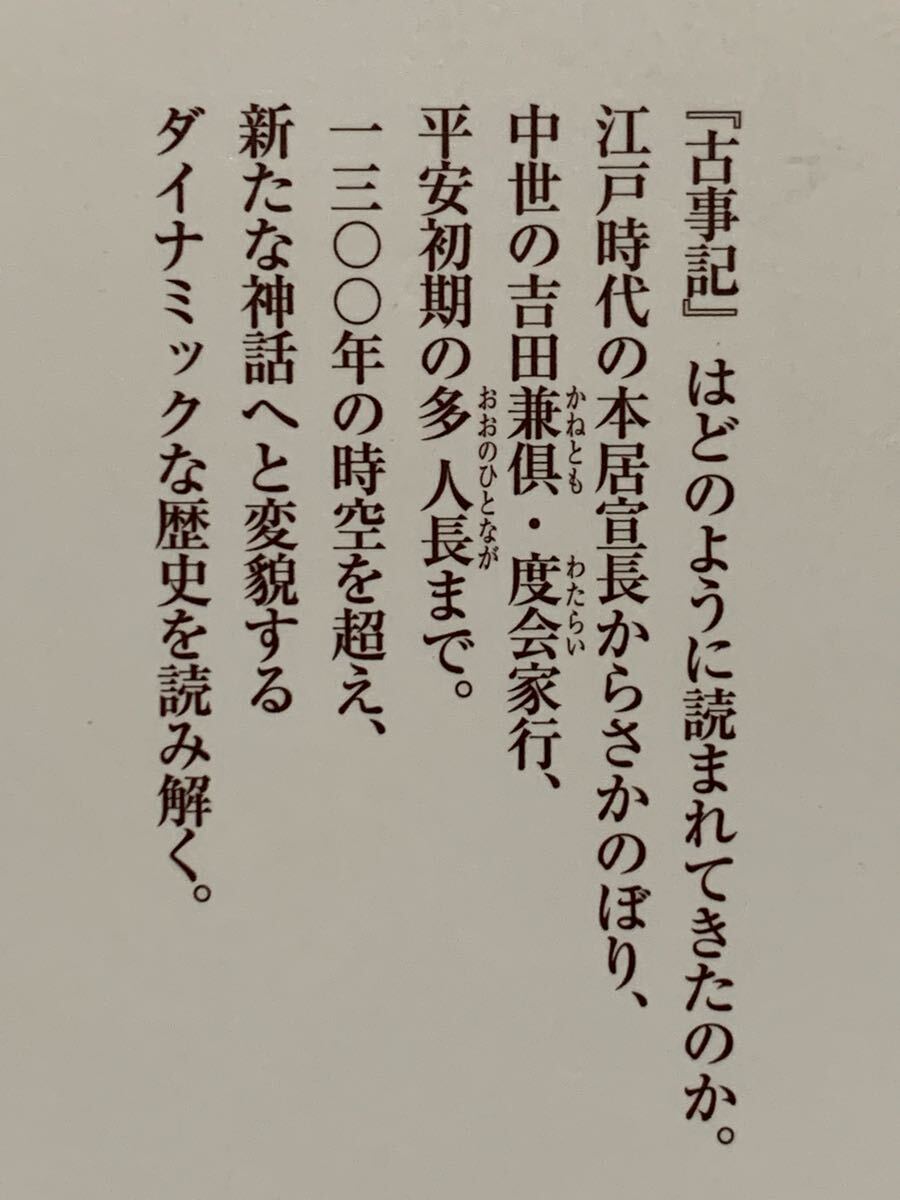 『古事記』はどのように読まれてきたのか。
江戸時代の本居宣長からさかのぼり、
中世の吉田兼倶・度会家行、
かねとも わたらい
平安初期の多人長まで。
おおのひとなが
一三〇〇年の時空を超え、
新たな神話へと変貌する
ダイナミックな歴史を読み解く。